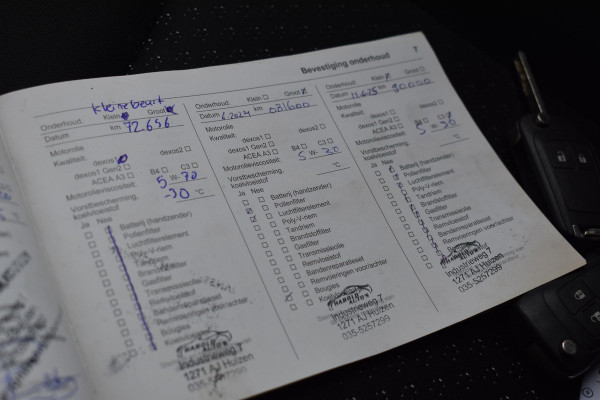 Bevestiging onderhoud
7
Kleine beurt
Onderhoud. Klein Groot
Datum km 72.656
Motorolie
Kwaliteit: dexos1 dexos2
dexos1 Gen2
ACEA A3 B4 C3
Motorolieviscositeit: 5 W-
Vorstbescherming, koelvloeistof -30 °C
Ja Nee
Batterij (handzender)
Pollenfilter
Luchtfilterelement
Poly-V-riem
Tandriem
Brandstoffilter
Gasfilter
Transmissieolie
Remvloeistof
Bandenreparatieset
Remvoeringen voor/achter
Bougies
Koelvloeistof
Industrieweg 7
1271 AJ Huizen
035-5257299
Onderhoud. Klein Groot
Datum 6.2024 km 081600
Motorolie
Kwaliteit: dexos1 dexos2
dexos1 Gen2
ACEA A3 B4 C3
Motorolieviscositeit: 5 W- 30
Vorstbescherming, koelvloeistof °C
Ja Nee
Batterij (handzender)
Pollenfilter
Luchtfilterelement
Poly-V-riem
Tandriem
Brandstoffilter
Gasfilter
Transmissieolie
Remvloeistof
Bandenreparatieset
Remvoeringen voor/achter
Bougies
Industrieweg 7
1271 AJ Huizen
035-5257299
Onderhoud. Klein Groot
Datum 11.6.25 km 90000
Motorolie
Kwaliteit: dexos1 dexos2
dexos1 Gen2
ACEA A3 B4 C3
Motorolieviscositeit: 5 W- 30
Vorstbescherming, koelvloeistof °C
Ja Nee
Batterij (handzender)
Pollenfilter
Luchtfilterelement
Poly-V-riem
Tandriem
Brandstoffilter
Gasfilter
Transmissieolie
Remvloeistof
Bandenreparatieset
Remvoeringen voor/achter
Industrieweg 7
1271 AJ Huizen
035-5257299